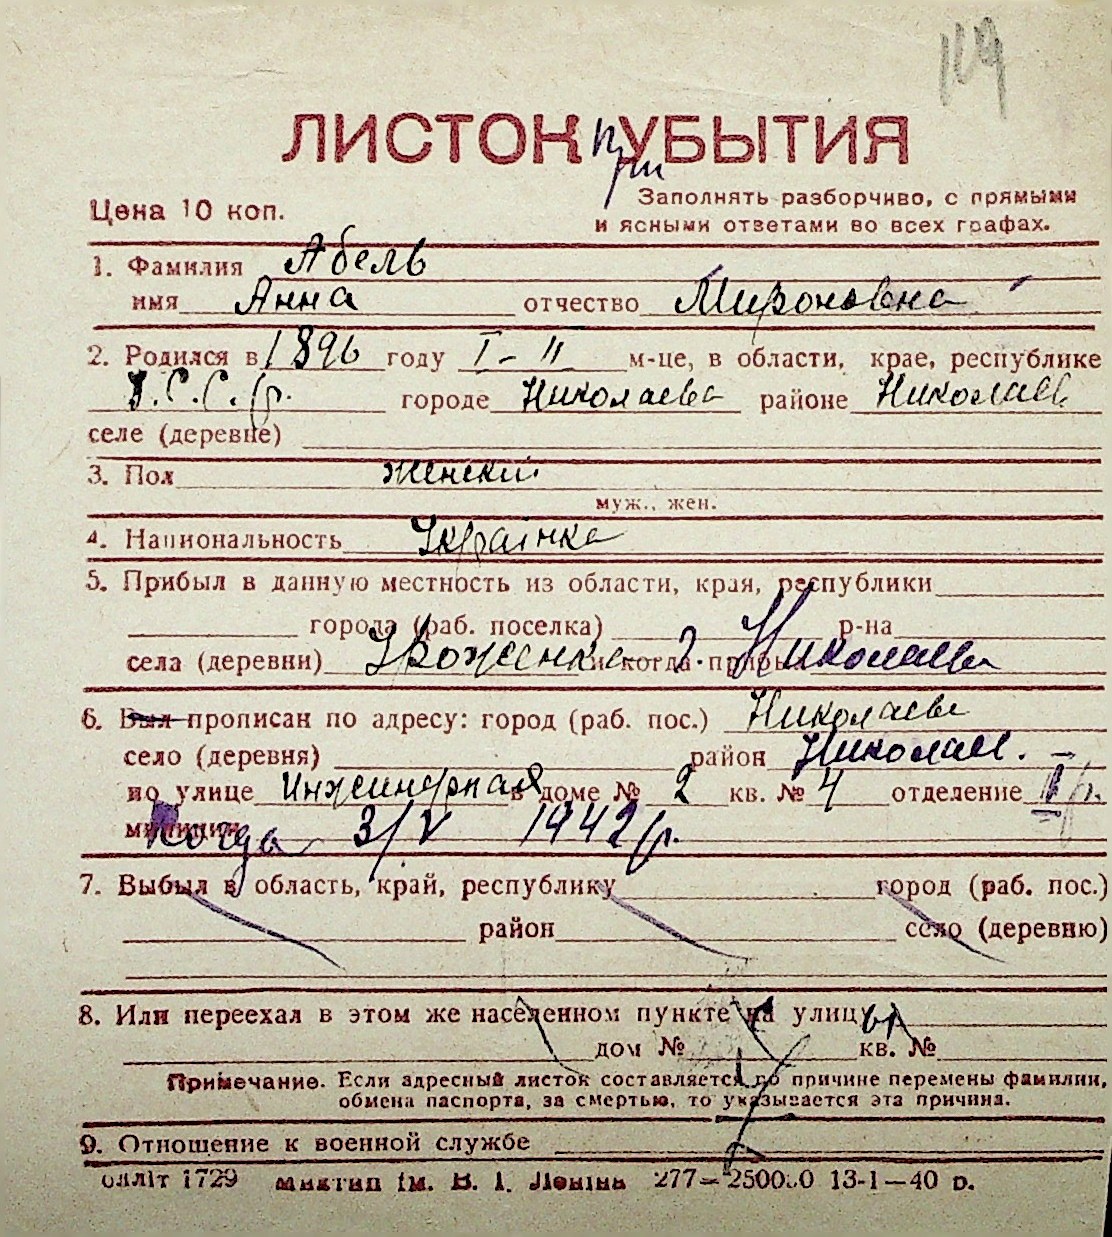 119
ЛИСТОК при УБЫТИЯ
Цена 10 коп.
Заполнять разборчиво, с прямыми
и ясными ответами во всех графах.
1. Фамилия Абель
имя Анна отчество Мироновна
2. Родился в 1896 году I-II м-це, в области, крае, республике
У.С.С.р. городе Николаева районе Николаев
селе (деревне)
3. Пол женский
муж., жен.
4. Национальность Украінка
5. Прибыл в данную местность из области, края, республики
города (раб. поселка) р-на
села (деревни) Уроженка г. Николаева
6. Был прописан по адресу: город (раб. пос.) Николаев
село (деревня) район Николаев. –
по улице Инжинерная в доме № 2 кв. № 4 отделение II
милиции Когда 3/V 1942 р.
7. Выбыл в область, край, республику город (раб. пос.)
район село (деревню)
8. Или переехал в этом же населенном пункте на улицу
дом № кв. №
Примечание. Если адресный листок составляется по причине перемены фамилии,
обмена паспорта, за смертью, то указывается эта причина.
9. Отношение к военной службе
1729 ім. В. І. Леніна 277–250000 13-1–40 р.